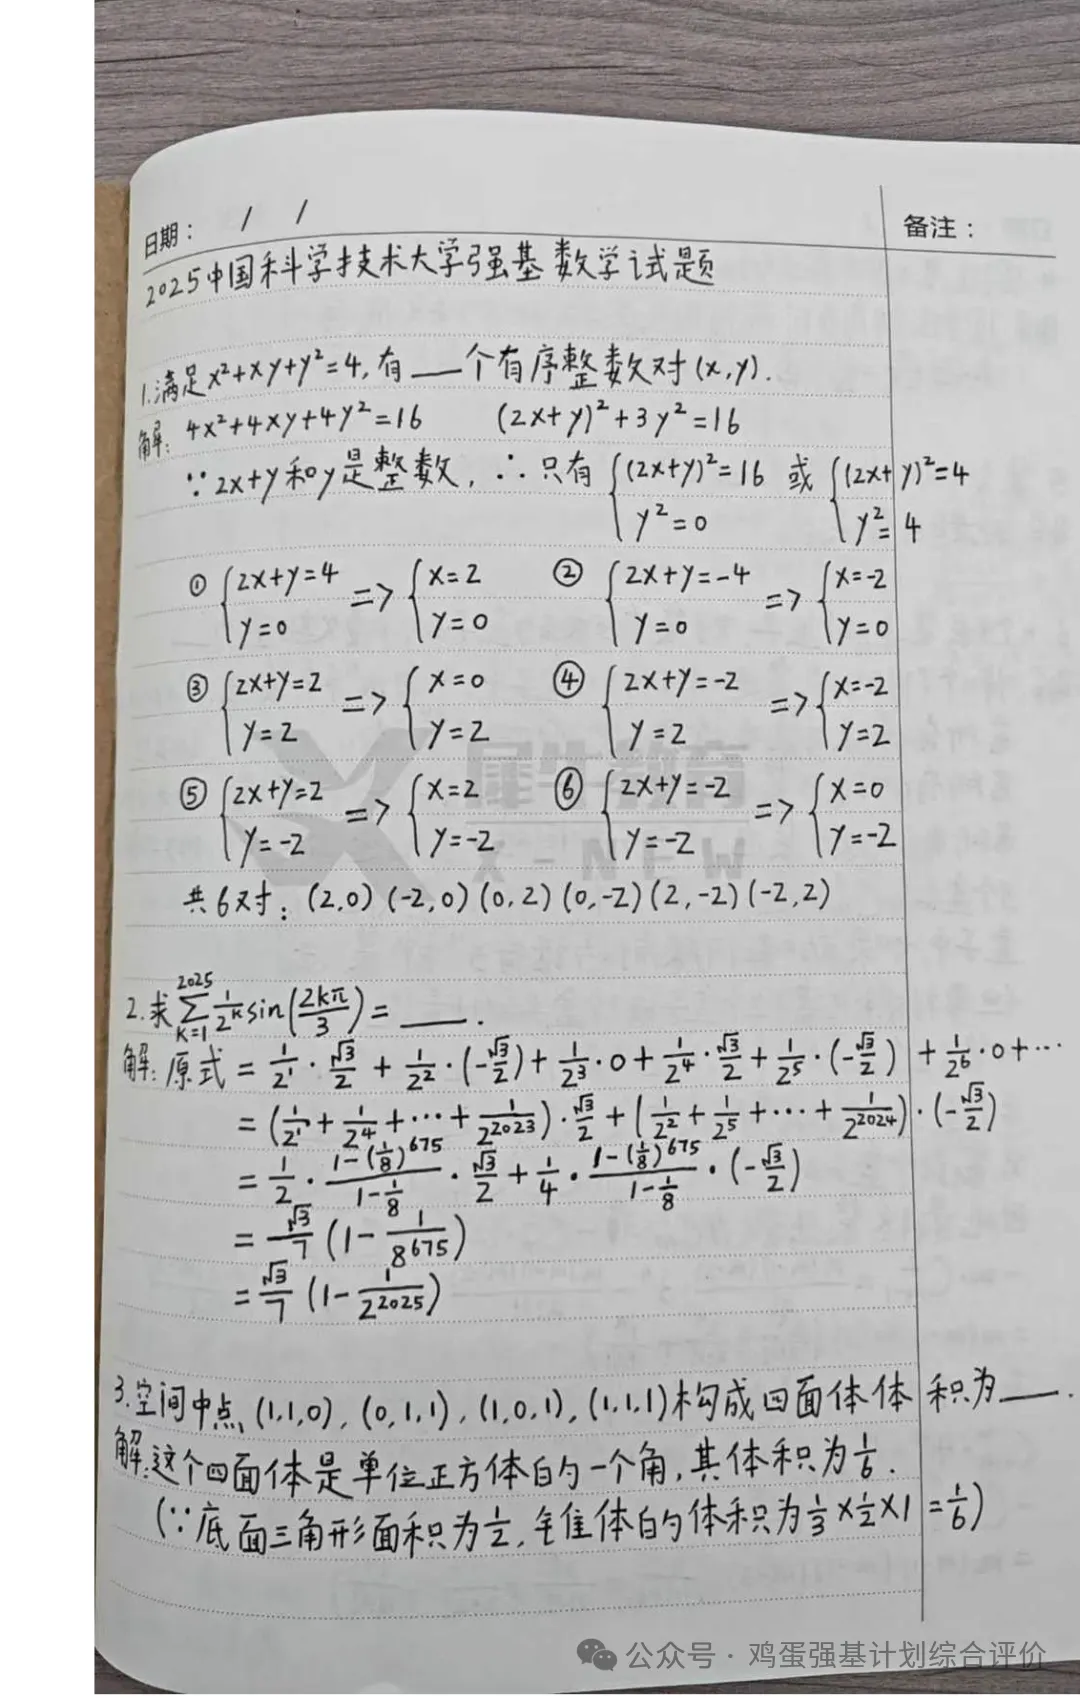 日期： / /
备注：
2025中国科学技术大学强基数学试题
1.满足x²+xy+y²=4,有___个有序整数对(x,y).
解: 4x²+4xy+4y²=16 (2x+y)²+3y²=16
∵2x+y和y是整数,∴只有{(2x+y)²=16 或 {(2x+y)²=4
y²=0 y²=4
① {2x+y=4 => {x=2 ② {2x+y=-4 => {x=-2
y=0 y=0 y=0 y=0
③ {2x+y=2 => {x=0 ④ {2x+y=-2 => {x=-2
y=2 y=2 y=2 y=2
⑤ {2x+y=2 => {x=2 ⑥ {2x+y=-2 => {x=0
y=-2 y=-2 y=-2 y=-2
犀牛教育
X-NEW
共6对: (2,0) (-2,0) (0,2) (0,-2) (2,-2) (-2,2)
2.求∑_{k=1}^{2025} 1/2^k sin(2kπ/3)=___.
解:原式=1/2¹·√3/2+1/2²·(-√3/2)+1/2³·0+1/2⁴·√3/2+1/2⁵·(-√3/2)+1/2⁶·0+···
=(1/2¹+1/2⁴+···+1/2^2023)·√3/2+(1/2²+1/2⁵+···+1/2^2024)·(-√3/2)
=1/2·(1-(1/8)^675)/(1-1/8)·√3/2+1/4·(1-(1/8)^675)/(1-1/8)·(-√3/2)
=√3/7(1-1/8^675)
=√3/7(1-1/2^2025)
3.空间中点(1,1,0),(0,1,1),(1,0,1),(1,1,1)构成四面体体积为___.
解:这个四面体是单位正方体的一个角,其体积为1/6.
(∵底面三角形面积为1/2,锥体的体积为1/3×1/2×1=1/6)
公众号·鸡蛋强基计划综合评价